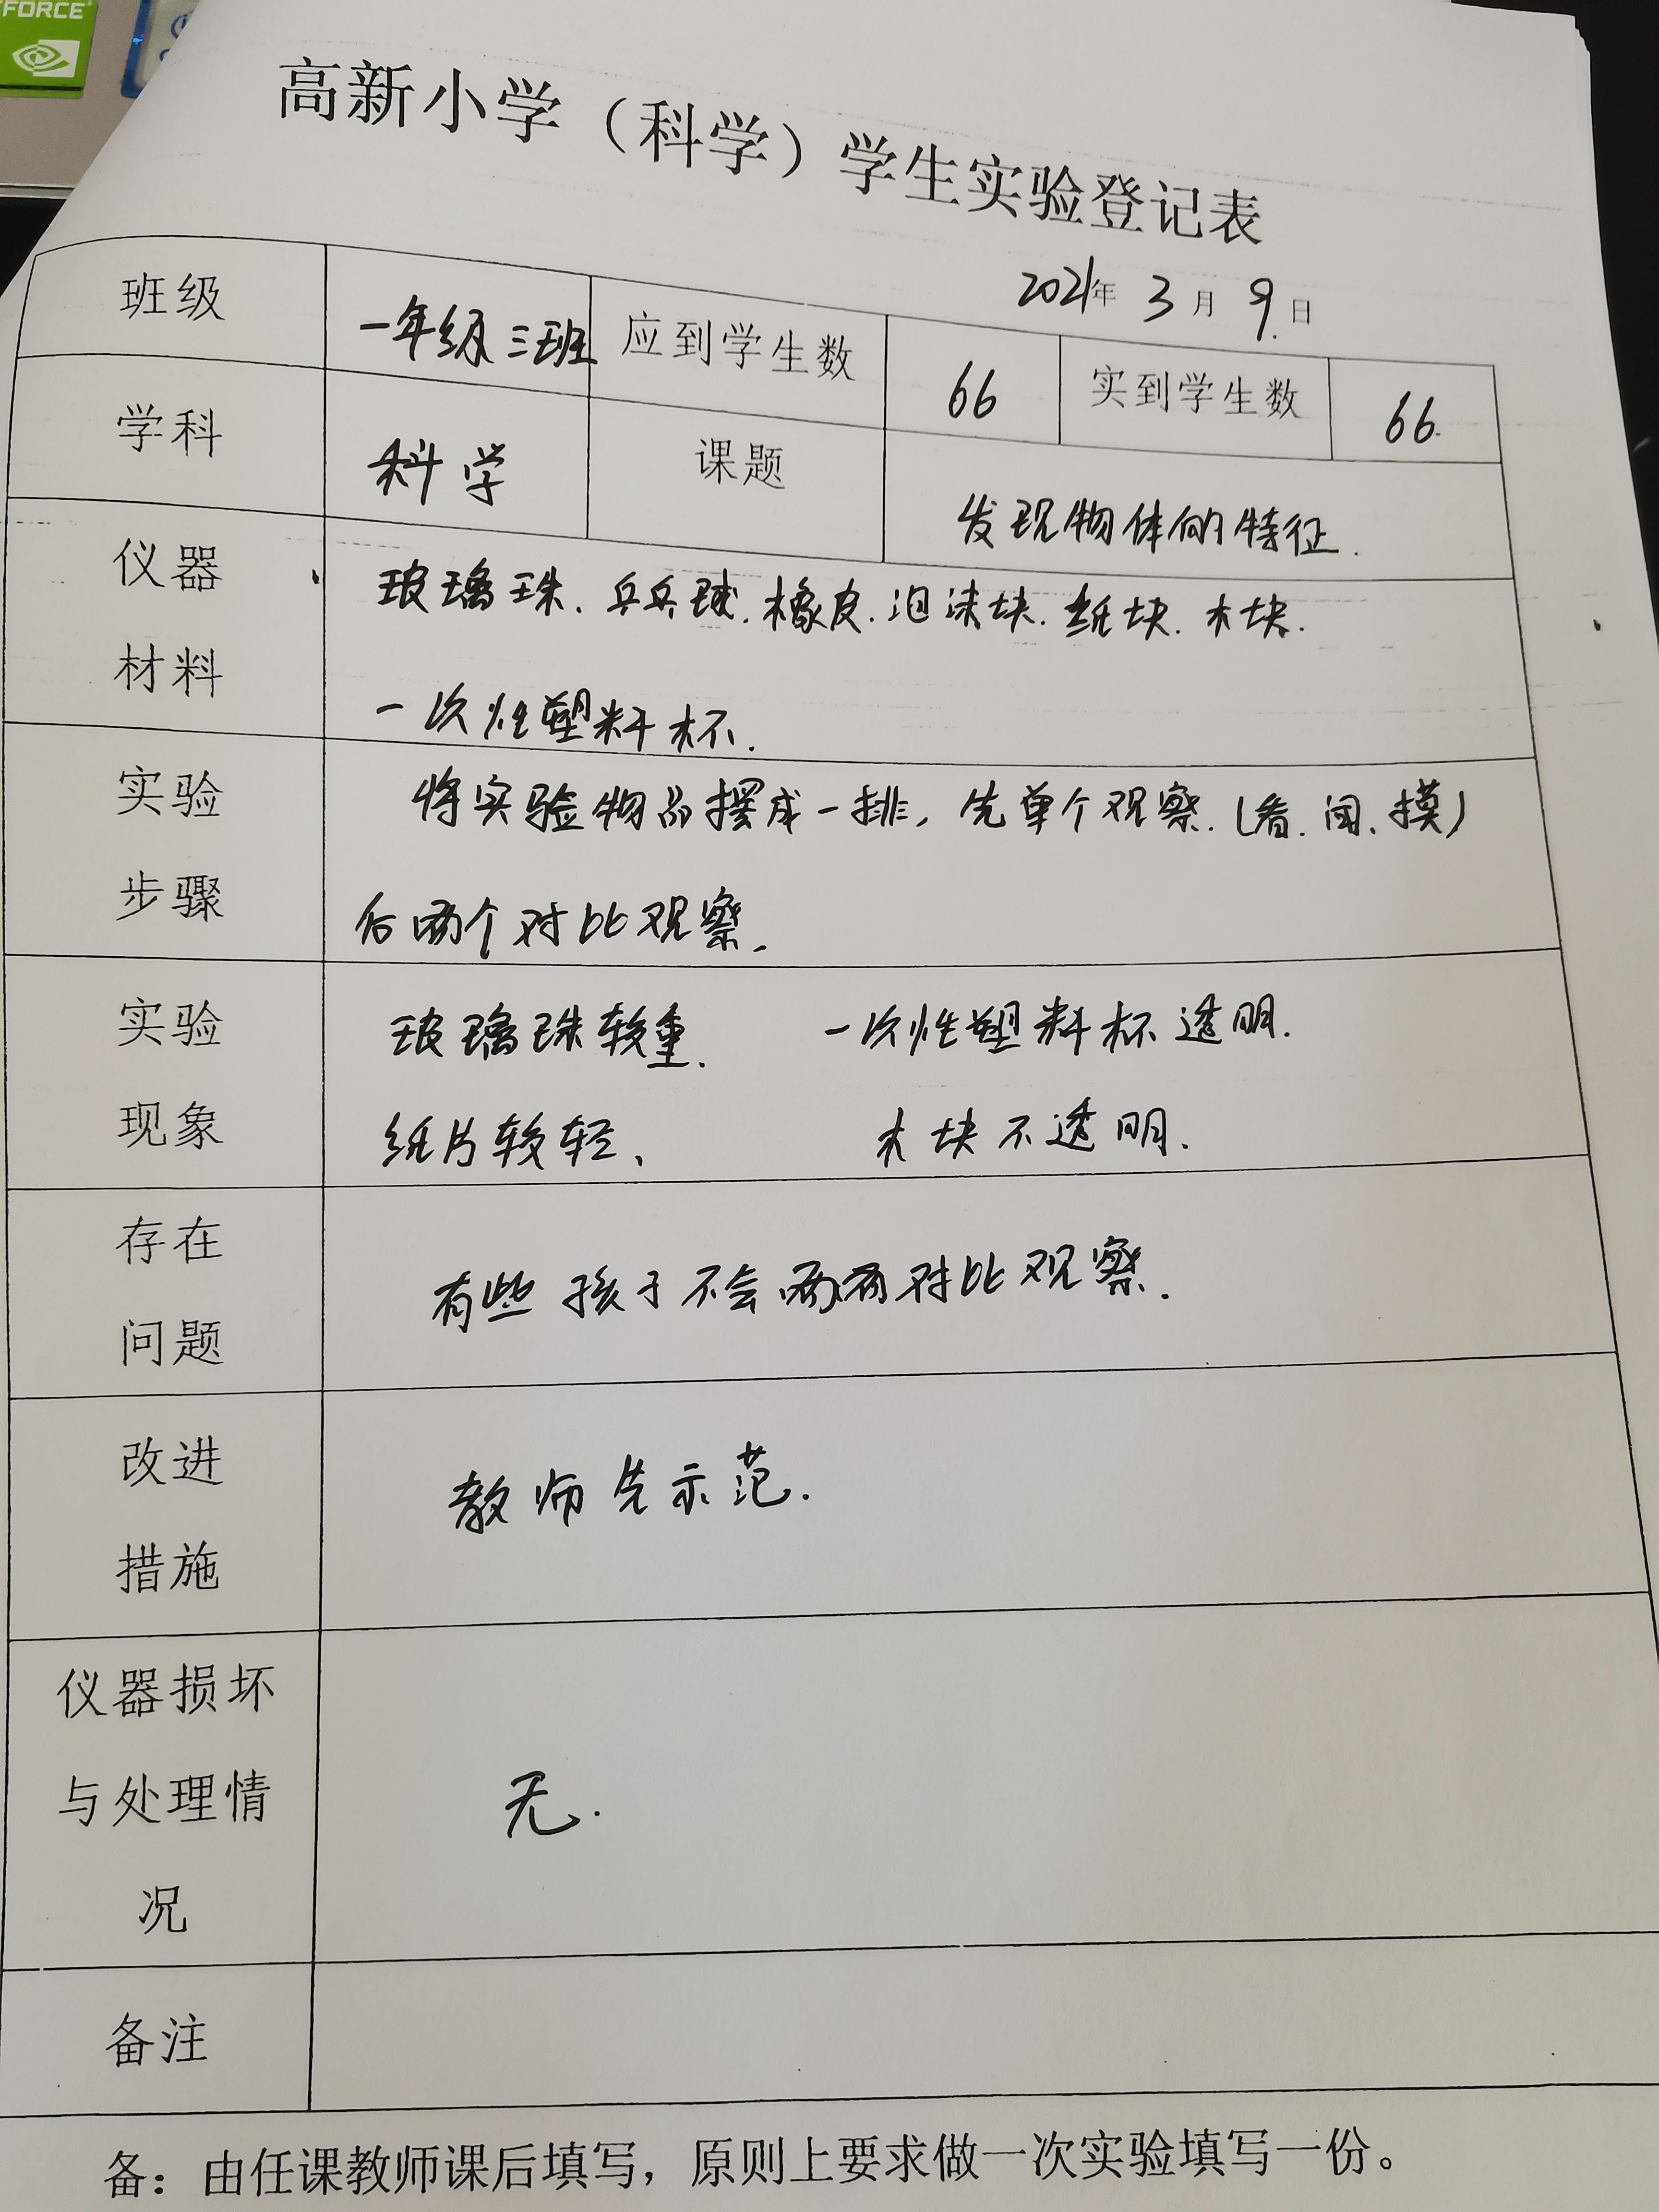 FORCE
高新小学（科学）学生实验登记表
2021年 3月 9日
班级 一年级三班 应到学生数 66 实到学生数 66
学科 科学 课题 发现物体的特征.
仪器 玻璃珠.乒乓球.橡皮.泡沫块.纸块.木块.
材料 一次性塑料杯.
实验 将实验物品摆成一排，先单个观察.(看.闻、摸)
步骤 后两个对比观察.
实验 玻璃珠较重. 一次性塑料杯透明.
现象 纸片较轻、 木块不透明.
存在
有些孩子不会两两对比观察.
问题
改进
教师先示范.
措施
仪器损坏
与处理情 无.
况
备注
备：由任课教师课后填写，原则上要求做一次实验填写一份。